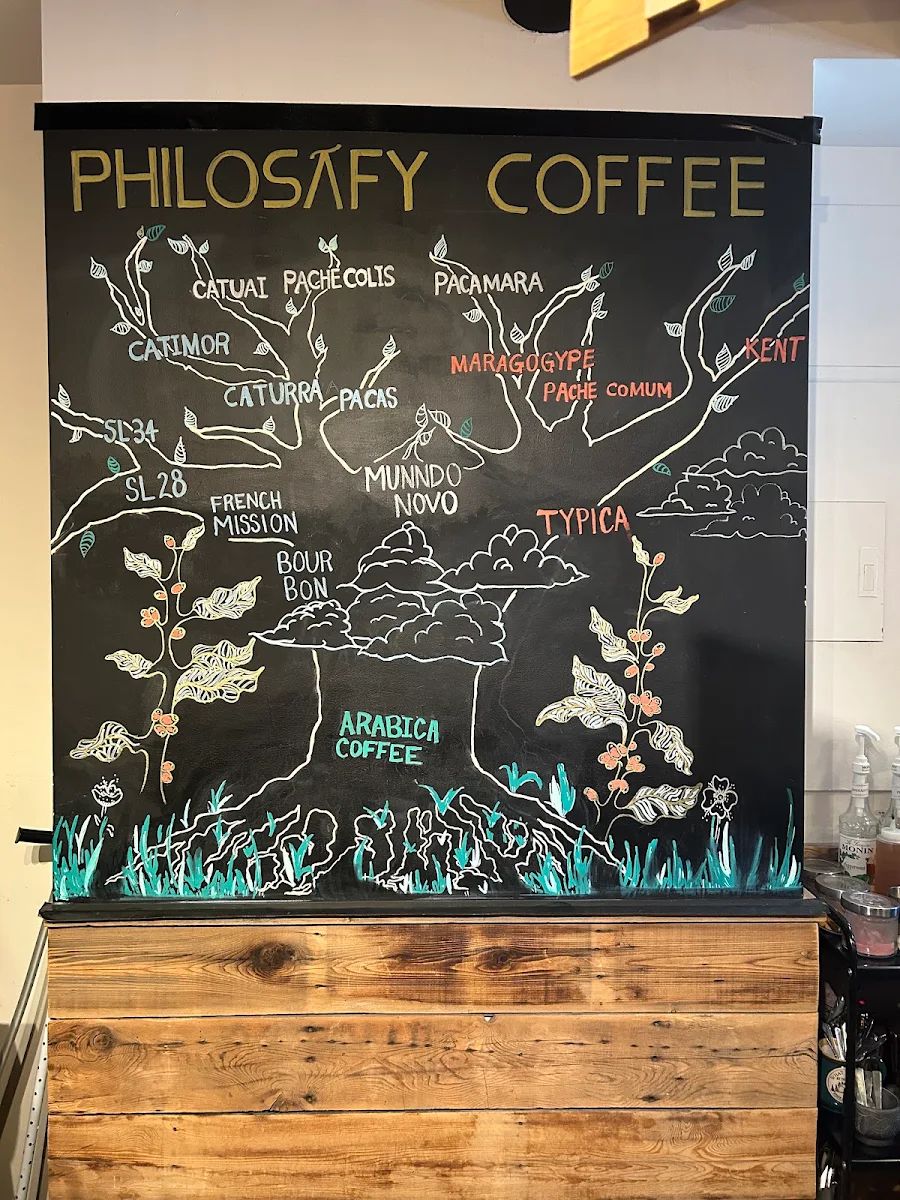 PHILOSAFY COFFEE
CATUAI
PACHE COLIS
PACAMARA
CATIMOR
MARAGOGYPE
KENT
CATURRA
PACAS
PACHE COMUM
SL34
SL28
MUNNDO
NOVO
FRENCH
MISSION
TYPICA
BOUR
BON
ARABICA
COFFEE
MONIN